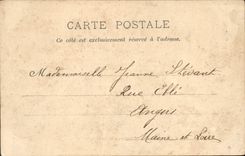 CARTE POSTALE
Ce côté est exclusivement réservé à l'adresse.
Mademoiselle Jeanne Thévant
Rue Eblé
Angers
Maine et Loire